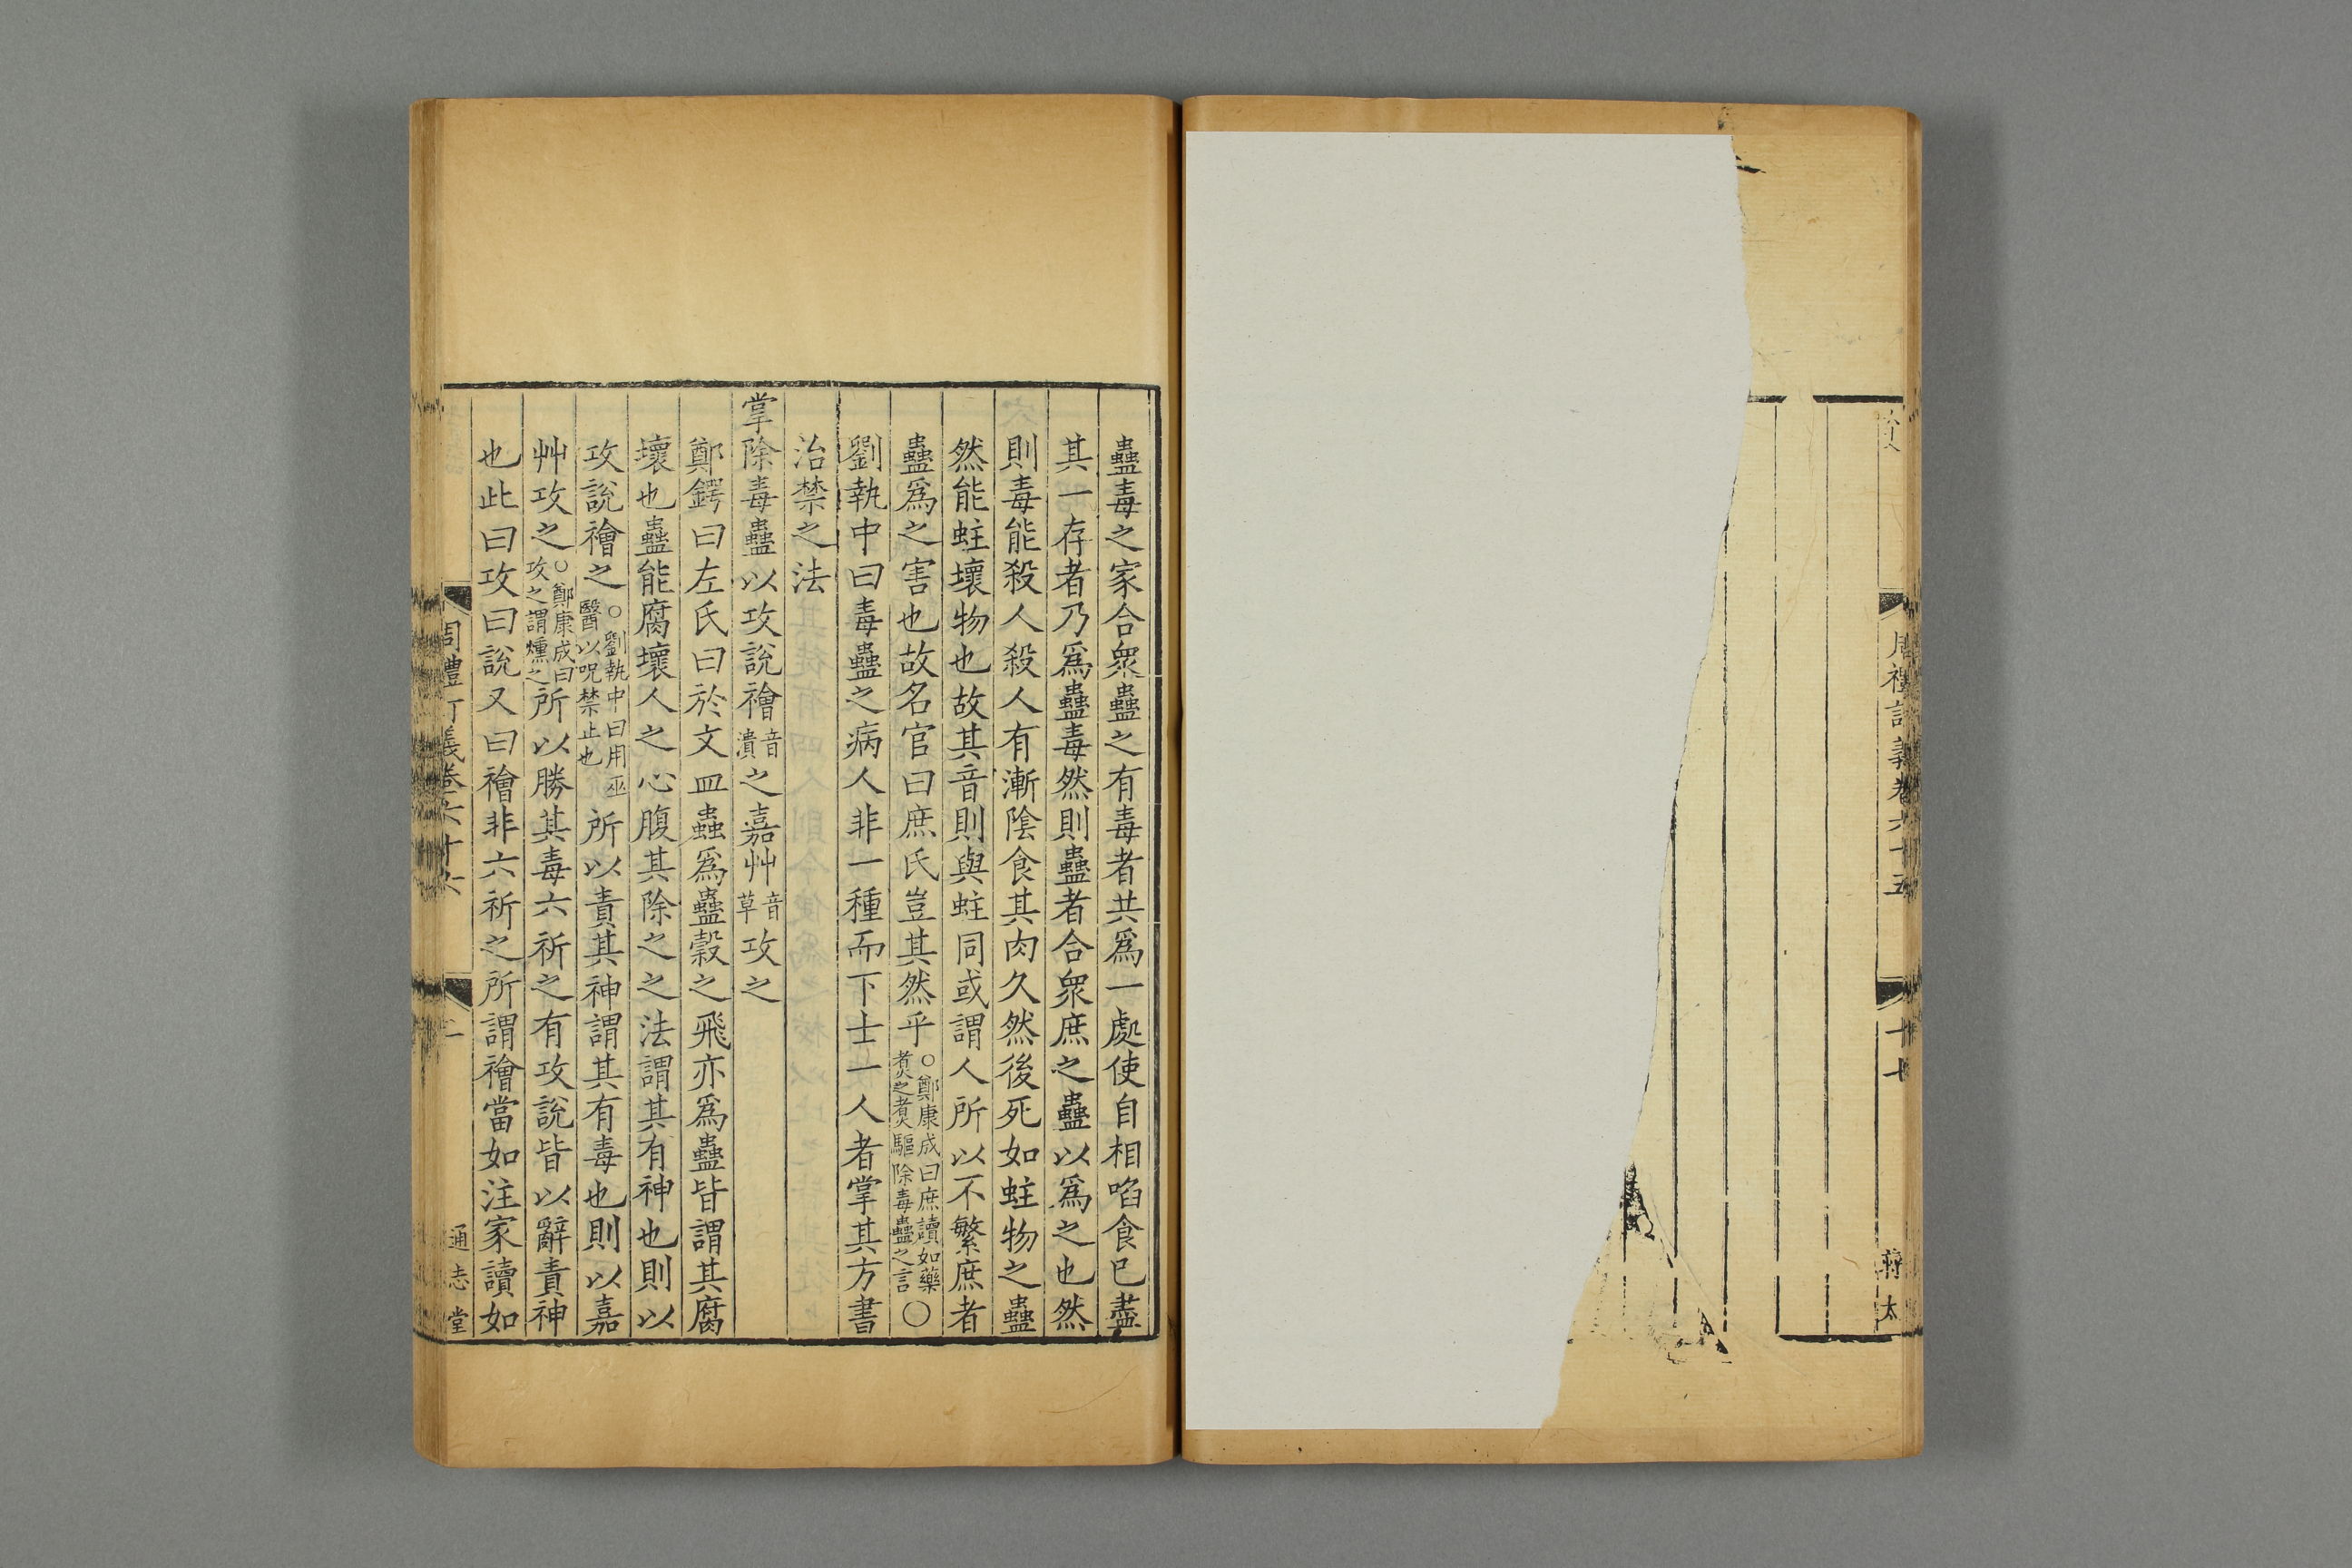 周禮訂義卷六十五
十七
太
蠱毒之家合衆蠱之有毒者共爲一處使自相啗食巳盡
其一存者乃爲蠱毒然則蠱者合衆庶之蠱以爲之也然
則毒能殺人殺人有漸陰食其肉久然後死如蛀物之蠱
然能蛀壞物也故其音則與蛀同或謂人所以不繁庶者
蠱爲之害也故名官曰庶氏豈其然乎○鄭康成曰庶讀如藥煑之煑驅除毒蠱之言○
劉執中曰毒蠱之病人非一種而下士一人者掌其方書
治禁之法
掌除毒蠱以攻說禬音潰之嘉艸音草攻之
鄭鍔曰左氏曰於文皿蟲爲蠱穀之飛亦爲蠱皆謂其腐
壞也蠱能腐壞人之心腹其除之之法謂其有神也則以
攻說禬之○劉執中曰用巫醫以呪禁止也所以責其神謂其有毒也則以嘉
艸攻之○鄭康成曰攻之謂燻之所以勝其毒六祈之有攻說皆以辭責神
也此曰攻曰說又曰禬非六祈之所謂禬當如注家讀如
周禮訂義卷六十六
一
通志堂